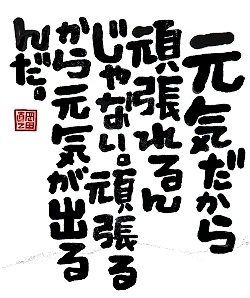 元気だから
頑張れるん
じゃない。頑張る
から元気が出る
んだ。